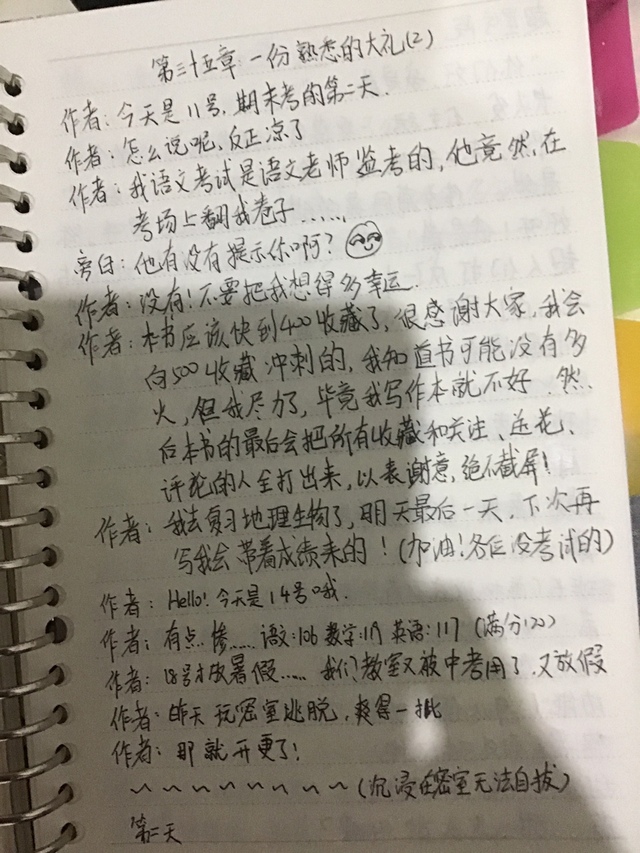 第三十五章:一份熟悉的大礼(2)
作者:今天是11号,期末考的第二天.
作者:怎么说呢,反正凉了
作者:我语文考试是语文老师监考的,他竟然,在
考场上翻我卷子……
旁白:他有没有提示你啊?
作者:没有!不要把我想得多幸运.
作者:本书应该快到400收藏了,很感谢大家,我会
向500收藏冲刺的,我知道书可能没有多
火,但我尽力了,毕竟我写作本就不好.然
后本书的最后会把所有收藏和关注、送花、
评论的人全打出来,以表谢意,绝不截屏!
作者:我去复习地理生物了,明天最后一天,下次再
写我会带着成绩来的!(加油!各位没考试的)
作者:Hello!今天是14号哦.
作者:有点惨……语文:106 数学:119 英语:117 (满分120)
作者:18号才放暑假……我们教室又被中考用了,又放假
作者:昨天玩密室逃脱,爽得一批
作者:那就开更了!
~~~~~~~~(沉浸在密室无法自拔)
第二天